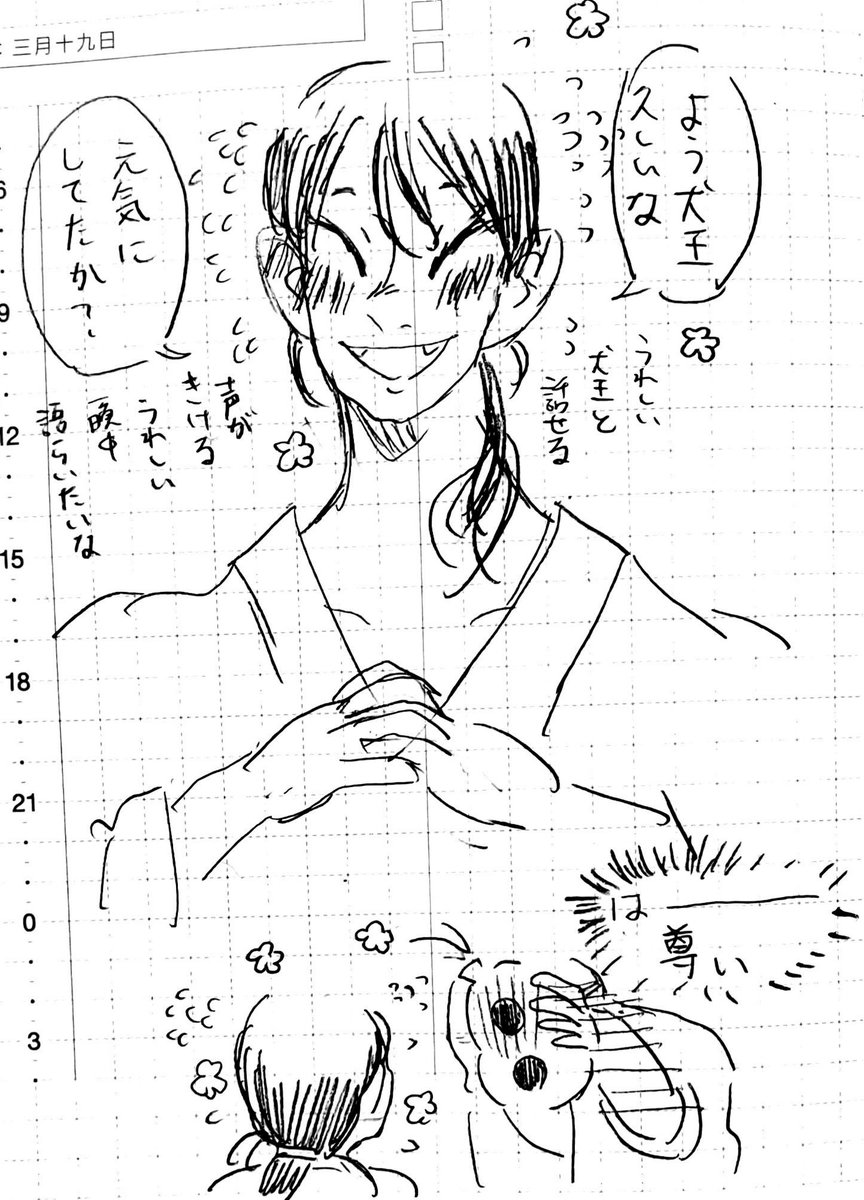 三月十九日
よう犬王
久しいな
元気に
してたか?
うれしい
犬王と
話せる
声が
きける
うれしい
一晩中
語らいたいな
は――
尊い
6
9
12
15
18
21
0
3